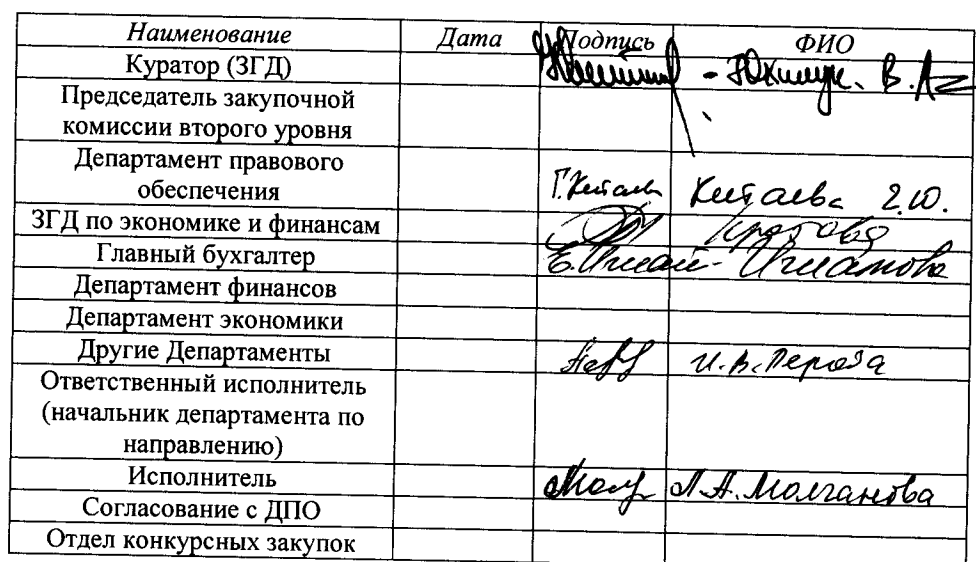 Наименование Дата Подпись ФИО
Куратор (ЗГД) В. А.
Председатель закупочной
комиссии второго уровня
Департамент правового
обеспечения Г.Китаева Китаева Г.Ю.
ЗГД по экономике и финансам Кротова
Главный бухгалтер Игматова
Департамент финансов
Департамент экономики
Другие Департаменты И.В.
Ответственный исполнитель
(начальник департамента по
направлению)
Исполнитель Л.А. Молчанова
Согласование с ДПО
Отдел конкурсных закупок